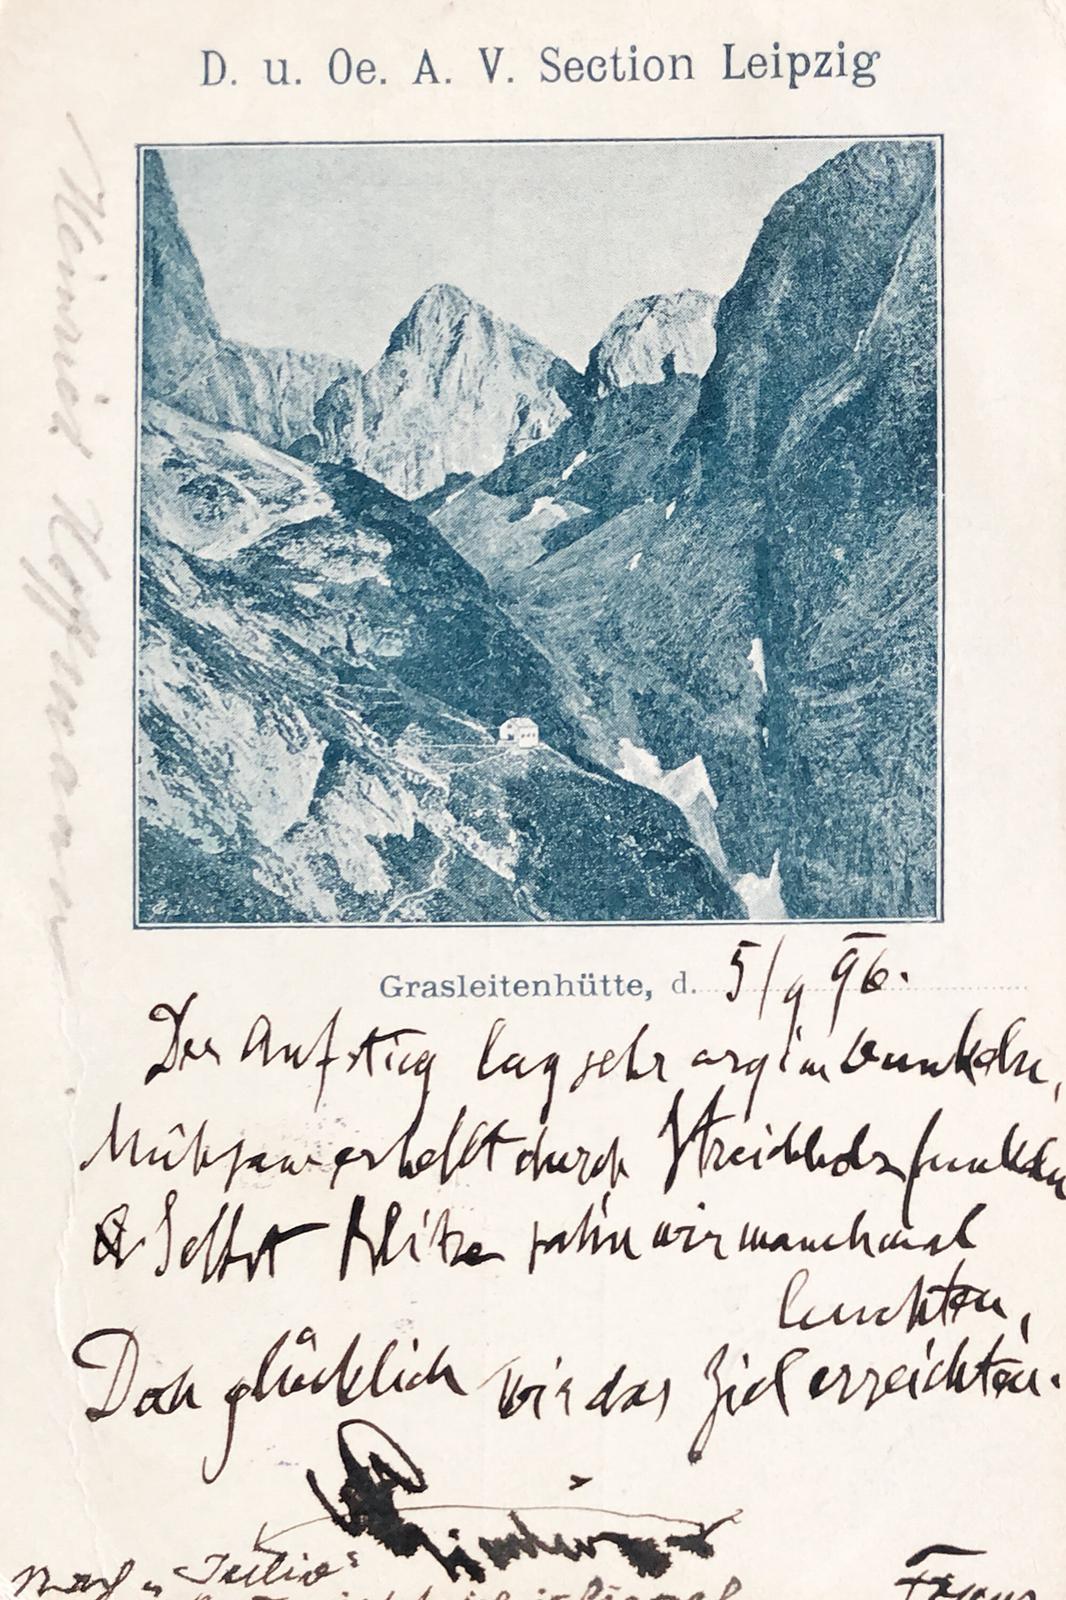 D. u. Oe. A. V. Section Leipzig
Heinrich Hoffmann
Grasleitenhütte, d. 5/9 96.
Der Aufstieg lag sehr arg im Dunkeln,
Mühsam erhellt durch Streichholzfunkeln
& Selbst Blitze sahn wir manchmal
leuchten,
Doch glücklich wir das Ziel erreichten.